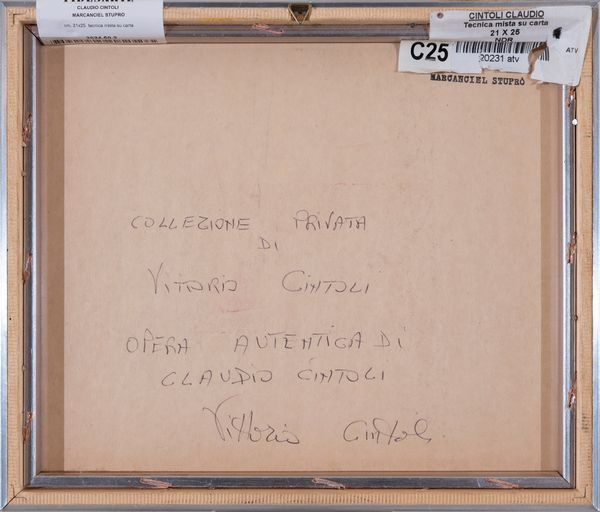 CLAUDIO CINTOLI
MARCANCIEL STUPRO
cm. 21x25 tecnica mista su carta
CINTOLI CLAUDIO
Tecnica mista su carta
21 X 25
NDR
C25
20231 atv
ATV
MARCANCIEL STUPRÒ
COLLEZIONE PRIVATA
DI
VITTORIO CINTOLI
OPERA AUTENTICA DI
CLAUDIO CINTOLI
Vittorio Cintoli